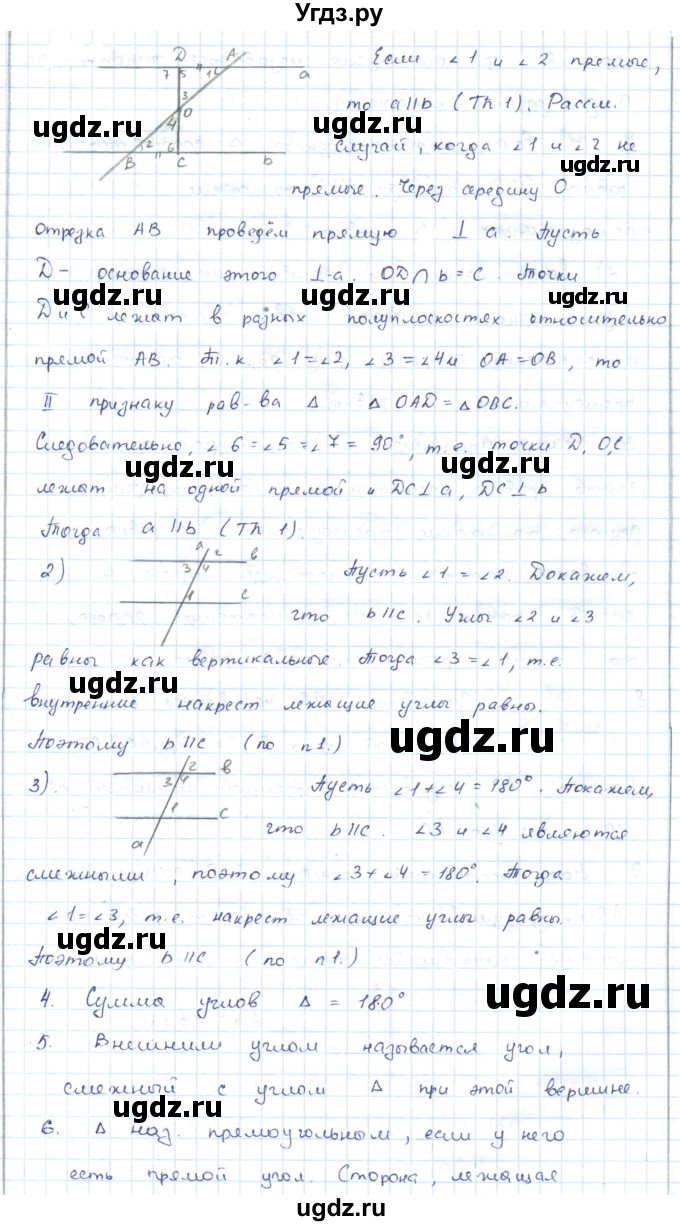 Угдз.ру
D A
7 5 1 a
3
O
4
2 6
B C b
Если ∠1 и ∠2 прямые,
то a||b (Th 1). Рассм.
ugdz.ru ugdz.ru
случай, когда ∠1 и ∠2 не
прямые. Через середину O
отрезка AB проведём прямую ⊥ a. Пусть
D - основание этого ⊥-а. OD ∩ b = C. Точки
ugdz.ru ugdz.ru
D и C лежат в разных полуплоскостях относительно
прямой AB. Т.к. ∠1=∠2, ∠3=∠4 и OA=OB, то
II признаку рав-ва Δ Δ OAD = Δ OBC.
Следовательно, ∠6=∠5=∠7=90°, т.е. точки D, O, C
ugdz.ru ugdz.ru
лежат на одной прямой и DC⊥a, DC⊥b
Тогда a||b (Th 1).
2)
A 2 b
3 4
1 c
Пусть ∠1=∠2. Докажем,
ugdz.ru
что b||c. Углы ∠2 и ∠3
равны как вертикальные. Тогда ∠3=∠1, т.е.
ugdz.ru
внутренние накрест лежащие углы равны.
Поэтому b||c (по п1.)
ugdz.ru
3)
2 b
3 4
1 c
a
Пусть ∠1+∠4=180°. Покажем,
что b||c. ∠3 и ∠4 являются
смежными, поэтому ∠3+∠4=180°. Тогда
∠1=∠3, т.е. накрест лежащие углы равны.
ugdz.ru
Поэтому b||c (по п1.)
4. Сумма углов Δ = 180°
ugdz.ru
5. Внешним углом называется угол,
смежный с углом Δ при этой вершине.
ugdz.ru
6. Δ наз. прямоугольным, если у него
есть прямой угол. Сторона, лежащая
ugdz.ru